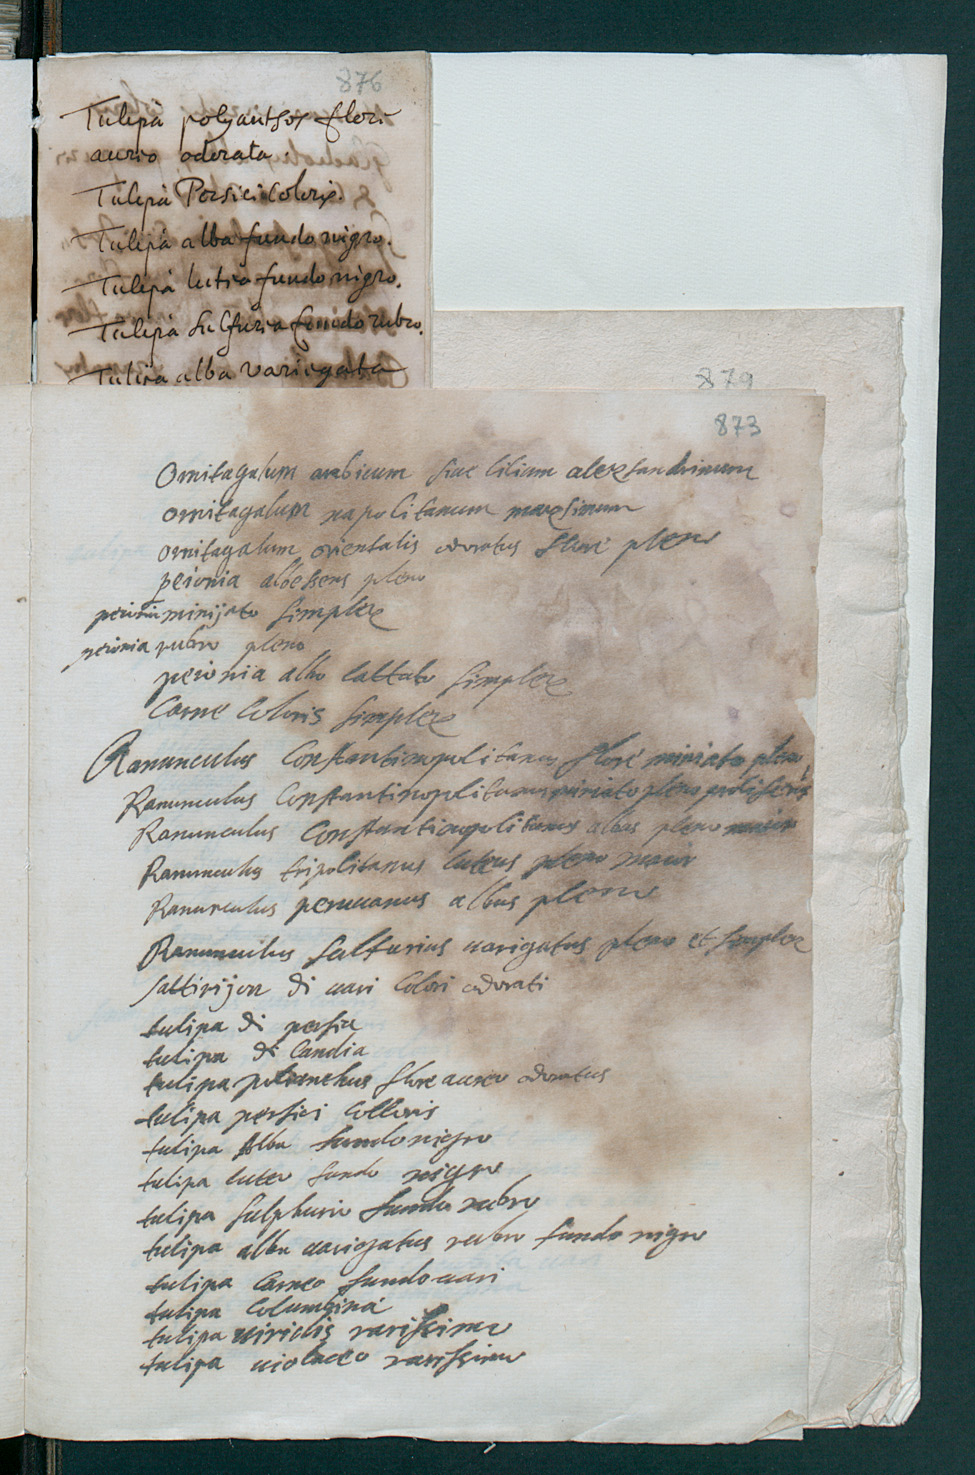 876
Tulipa polyanthos flore
aureo odorata.
Tulipa Persici Coloris.
Tulipa alba fundo nigro.
Tulipa lutea fundo nigro.
Tulipa Sulfurea fundo rubro.
Tulipa alba variegata
879
873
Ornitagalum arabicum siue lilium alexsandrinum
ornitagalum napolitanum maxsimum
ornitagalum orientalis odoratus flore pleno
peionia albessens pleno
peionia minijato simplex
peionia rubro pleno
peionia albo lattato simplex
Carne Coloris simplex
Ranunculus Constantinopulitanus flore miniato pleno
Ranunculus Constantinoplitanus miniato pleno prolifero
Ranunculus Constantinopolitanus albus pleno maior
Ranunculus tripolitanus luteus pleno maior
Ranunculus peruuanus albus pleno
Ranunculus sulfurius uarigatus pleno et simplex
sattirijon di uari Colori odorati
tulipa di persia
tulipa di Candia
tulipa polianthus flore aureo odoratus
tulipa persici Colloris
tulipa Alba fundo nigro
tulipa luteo fundo nigro
tulipa sulphurio fundo rubro
tulipa albu uariogatus rubro fundo nigro
tulipa Carneo fundo uari
tulipa Columbina
tulipa uiridis rarissimo
tulipa uiolaceo rarissimo